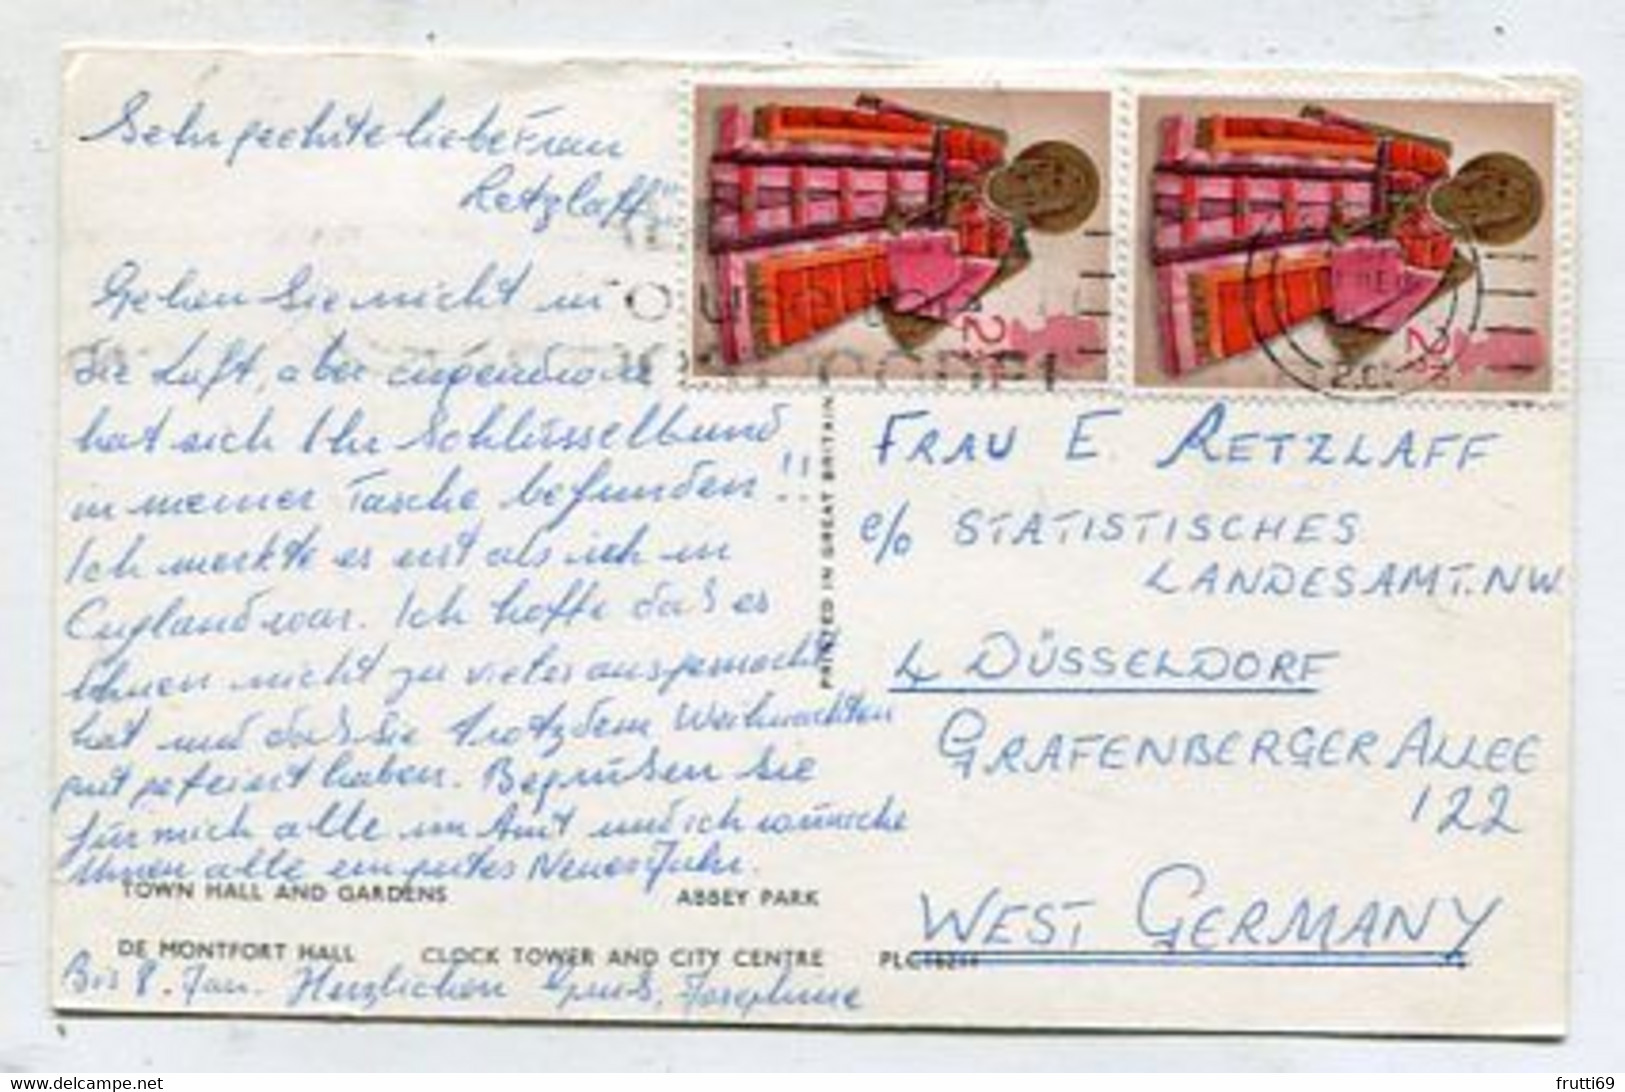 Sehr geehrte liebe Frau
Retzlaff"
Gehen Sie nicht in
die Luft, aber irgendwie
hat sich Ihr Schlüsselbund
in meiner Tasche befunden!!
Ich merkte es erst als ich in
England war. Ich hoffe daß es
Ihnen nicht zu vieles ausgemacht
hat und daß sie trotzdem Weihnachten
gut gefeiert haben. Begrüßen Sie
für mich alle im Amt und ich wünsche
Ihnen alle ein gutes Neues Jahr.
TOWN HALL AND GARDENS ABBEY PARK
DE MONTFORT HALL CLOCK TOWER AND CITY CENTRE
Bis 8. Jan. Herzlichen Gruß, Josephine
PRINTED IN GREAT BRITAIN
2½
2½
FRAU E. RETZLAFF
c/o STATISTISCHES
LANDESAMT. NW
4 DÜSSELDORF
GRAFENBERGER ALLEE
122
WEST GERMANY
frutti69